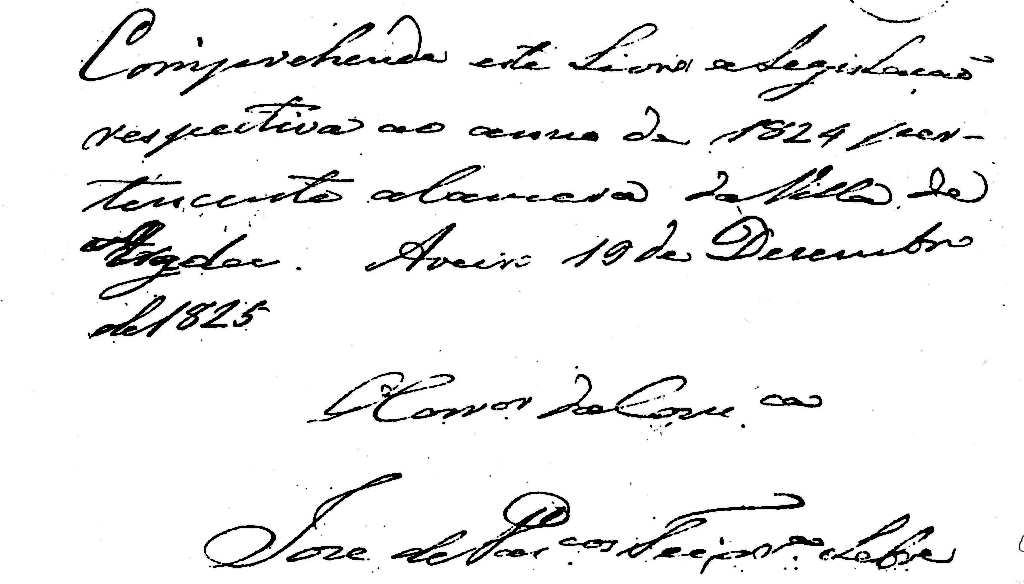 Comprehende este Livro a Legislação
respectiva ao anno de 1824 per-
tencente a Camera da Villa de
Agda. Aveiro 19 de Desembro
de 1825
O Corr.or da Com.ca
Jose de Vas.cos Teix.ra Lebre